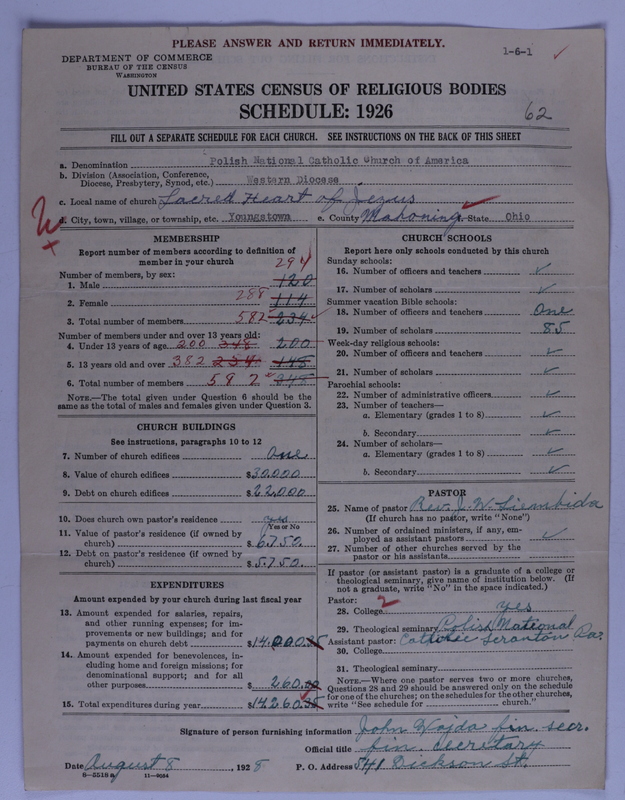 PLEASE ANSWER AND RETURN IMMEDIATELY.
1-6-1
DEPARTMENT OF COMMERCE
BUREAU OF THE CENSUS
WASHINGTON
UNITED STATES CENSUS OF RELIGIOUS BODIES
SCHEDULE: 1926
62
FILL OUT A SEPARATE SCHEDULE FOR EACH CHURCH. SEE INSTRUCTIONS ON THE BACK OF THIS SHEET
a. Denomination Polish National Catholic Church of America
b. Division (Association, Conference, Diocese, Presbytery, Synod, etc.) Western Diocese
c. Local name of church Sacred Heart of Jezus
d. City, town, village, or township, etc. Youngstown e. County Mahoning f. State Ohio
MEMBERSHIP
Report number of members according to definition of member in your church
294
Number of members, by sex:
1. Male 120
2. Female 288 114
3. Total number of members 582 234
Number of members under and over 13 years old:
4. Under 13 years of age 200 348 200
5. 13 years old and over 382 234 148
6. Total number of members 592 348
NOTE.—The total given under Question 6 should be the same as the total of males and females given under Question 3.
CHURCH BUILDINGS
See instructions, paragraphs 10 to 12
7. Number of church edifices One
8. Value of church edifices $30,000
9. Debt on church edifices $22,000
10. Does church own pastor's residence yes
Yes or No
11. Value of pastor's residence (if owned by church) $6,750.
12. Debt on pastor's residence (if owned by church) $5,750.
EXPENDITURES
Amount expended by your church during last fiscal year
13. Amount expended for salaries, repairs, and other running expenses; for improvements or new buildings; and for payments on church debt $14,000.35
14. Amount expended for benevolences, including home and foreign missions; for denominational support; and for all other purposes $260.
15. Total expenditures during year $14260.35
CHURCH SCHOOLS
Report here only schools conducted by this church
Sunday schools:
16. Number of officers and teachers ✓
17. Number of scholars ✓
Summer vacation Bible schools:
18. Number of officers and teachers One
19. Number of scholars 85
Week-day religious schools:
20. Number of officers and teachers ✓
21. Number of scholars ✓
Parochial schools:
22. Number of administrative officers ✓
23. Number of teachers—
a. Elementary (grades 1 to 8) ✓
b. Secondary ✓
24. Number of scholars—
a. Elementary (grades 1 to 8) ✓
b. Secondary ✓
PASTOR
25. Name of pastor Rev. J. W.
(If church has no pastor, write "None")
26. Number of ordained ministers, if any, employed as assistant pastors ✓
27. Number of other churches served by the pastor or his assistants
If pastor (or assistant pastor) is a graduate of a college or theological seminary, give name of institution below. (If not a graduate, write "No" in the space indicated.)
Pastor:
28. College 2 Yes
29. Theological seminary Polish National
Assistant pastor: Catholic Scranton Pa.
30. College
31. Theological seminary
NOTE.—Where one pastor serves two or more churches, Questions 28 and 29 should be answered only on the schedule for one of the churches; on the schedules for the other churches, write "See schedule for church."
Signature of person furnishing information John Wojda fin. secr.
Official title fin. secretary
Date August 8, 1928 P. O. Address 541 Dickson St.
8—5518a 11—9084